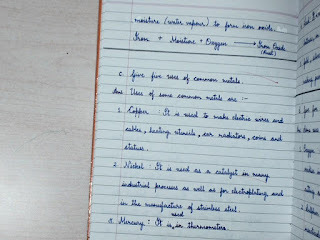 moisture (water vapour) to form iron oxide.
Iron + Moisture + Oxygen ⟶ Iron Oxide
(Rust)
c. Give five uses of common metals.
Ans Uses of some common metals are :-
1. Copper : It is used to make electric wires and
cables, heating utensils, car radiators, coins and
statues.
2. Nickel : It is used as a catalyst in many
industrial processes as well as for electroplating and
in the manufacture of stainless steel.
used
3. Mercury : It is, in thermometers.